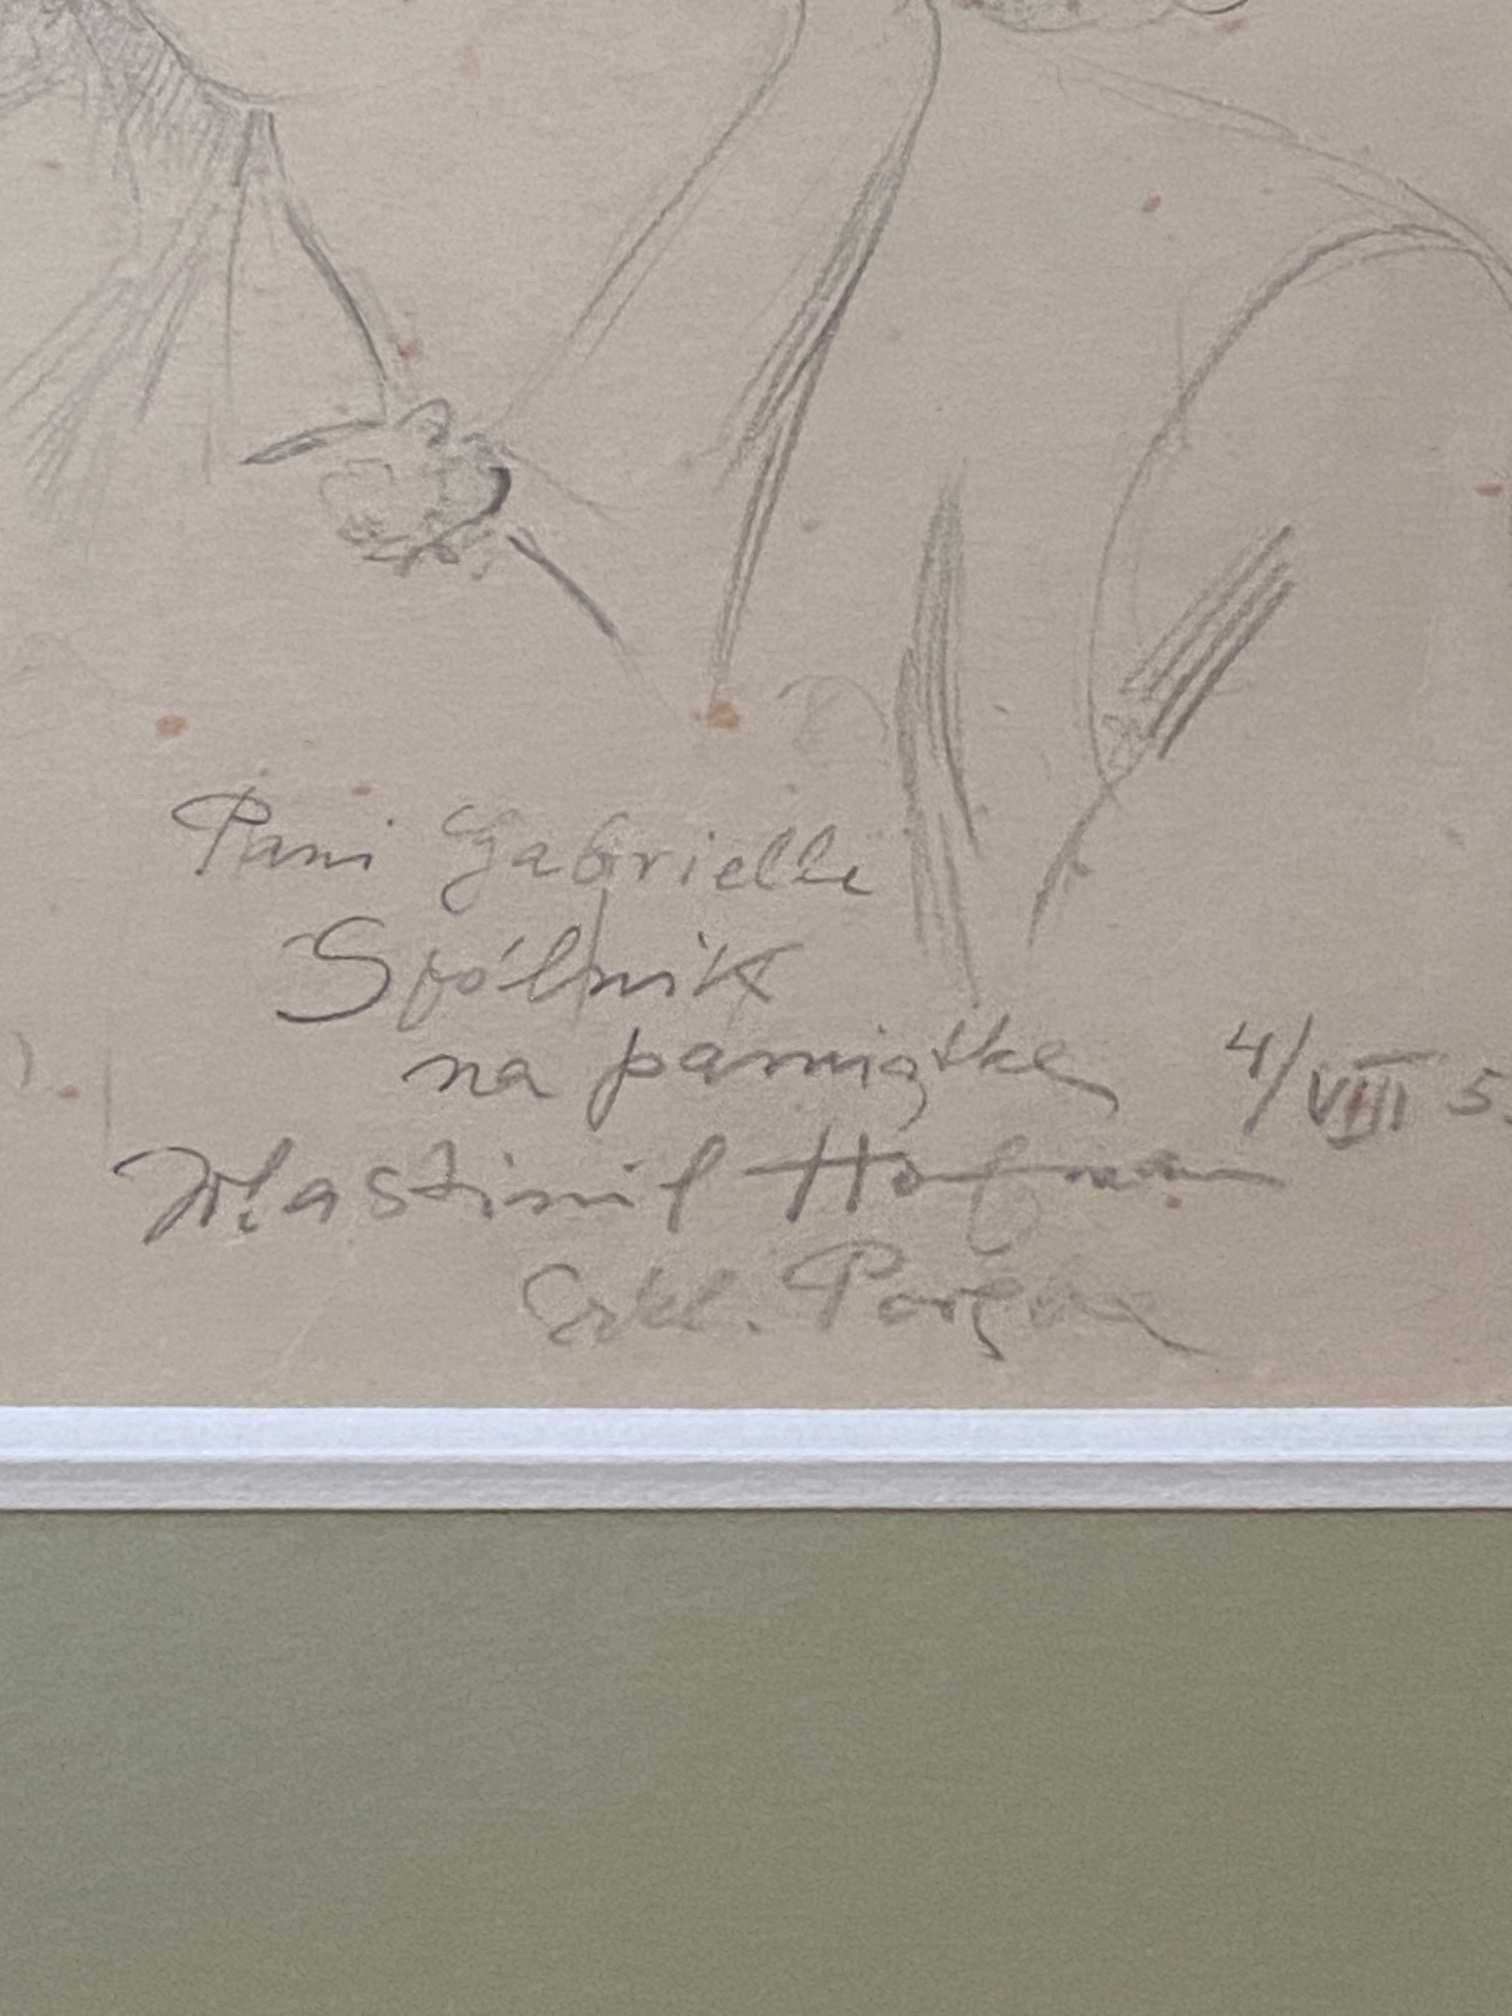 Pani Gabrielli
Spólnik
na pamiątkę 4/VIII 5
Wlastimil Hofman
Szkl. Poręba